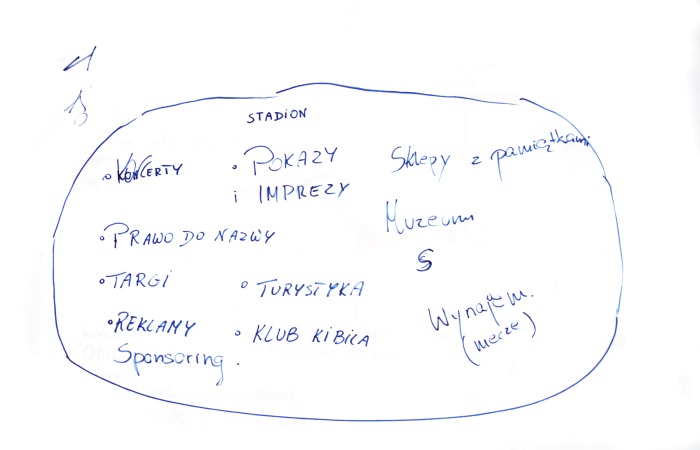 STADION
• KONCERTY
• POKAZY
i IMPREZY
• PRAWO DO NAZWY
• TARGI
• TURYSTYKA
• REKLAMY
Sponsoring.
• KLUB KIBICA
Sklepy z pamiątkami
Muzeum
S
Wynajem.
(mecze)